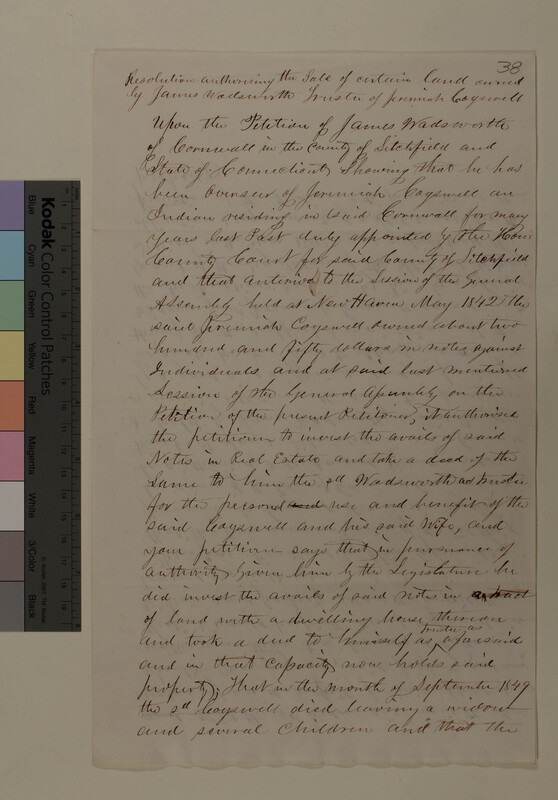 38
Resolution authorising the Sale of certain land owned
by James Wadsworth Trustee of Jeremiah Cogswell
Upon the Petition of James Wadsworth
of Cornwall in the County of Litchfield and
State of Connecticut, Showing that he has
been Overseer of Jeremiah Cogswell an
Indian residing in said Cornwall for many
years last Past duly appointed by the Hon
County Court for said County of Litchfield
and that anterior to the Session of the General
Assembly held at New Haven May 1842 the
said Jeremiah Cogswell owned about two
hundred and fifty dollars in notes against
Individuals and at said last mentioned
Session of the General Assembly on the
Petition of the present Petitioner, it authorised
the petitioner to invest the avails of said
Notes in Real Estate and take a deed of the
Same to him the sd Wadsworth as trustee
for the personal and use and benefit of the
said Cogswell and his said Wife, and
your petitioner says that in pursuance of
authority given him by the Legislature he
did invest the avails of said notes in a tract
of land with a dwelling house thereon
and took a deed to himself as trustee as aforesaid
and in that capacity now holds said
property, That in the month of September 1849
the sd Cogswell died leaving a widow
and several Children and that the
Kodak Color Control Patches
Blue
Cyan
Green
Yellow
Red
Magenta
White
3/Color
Black